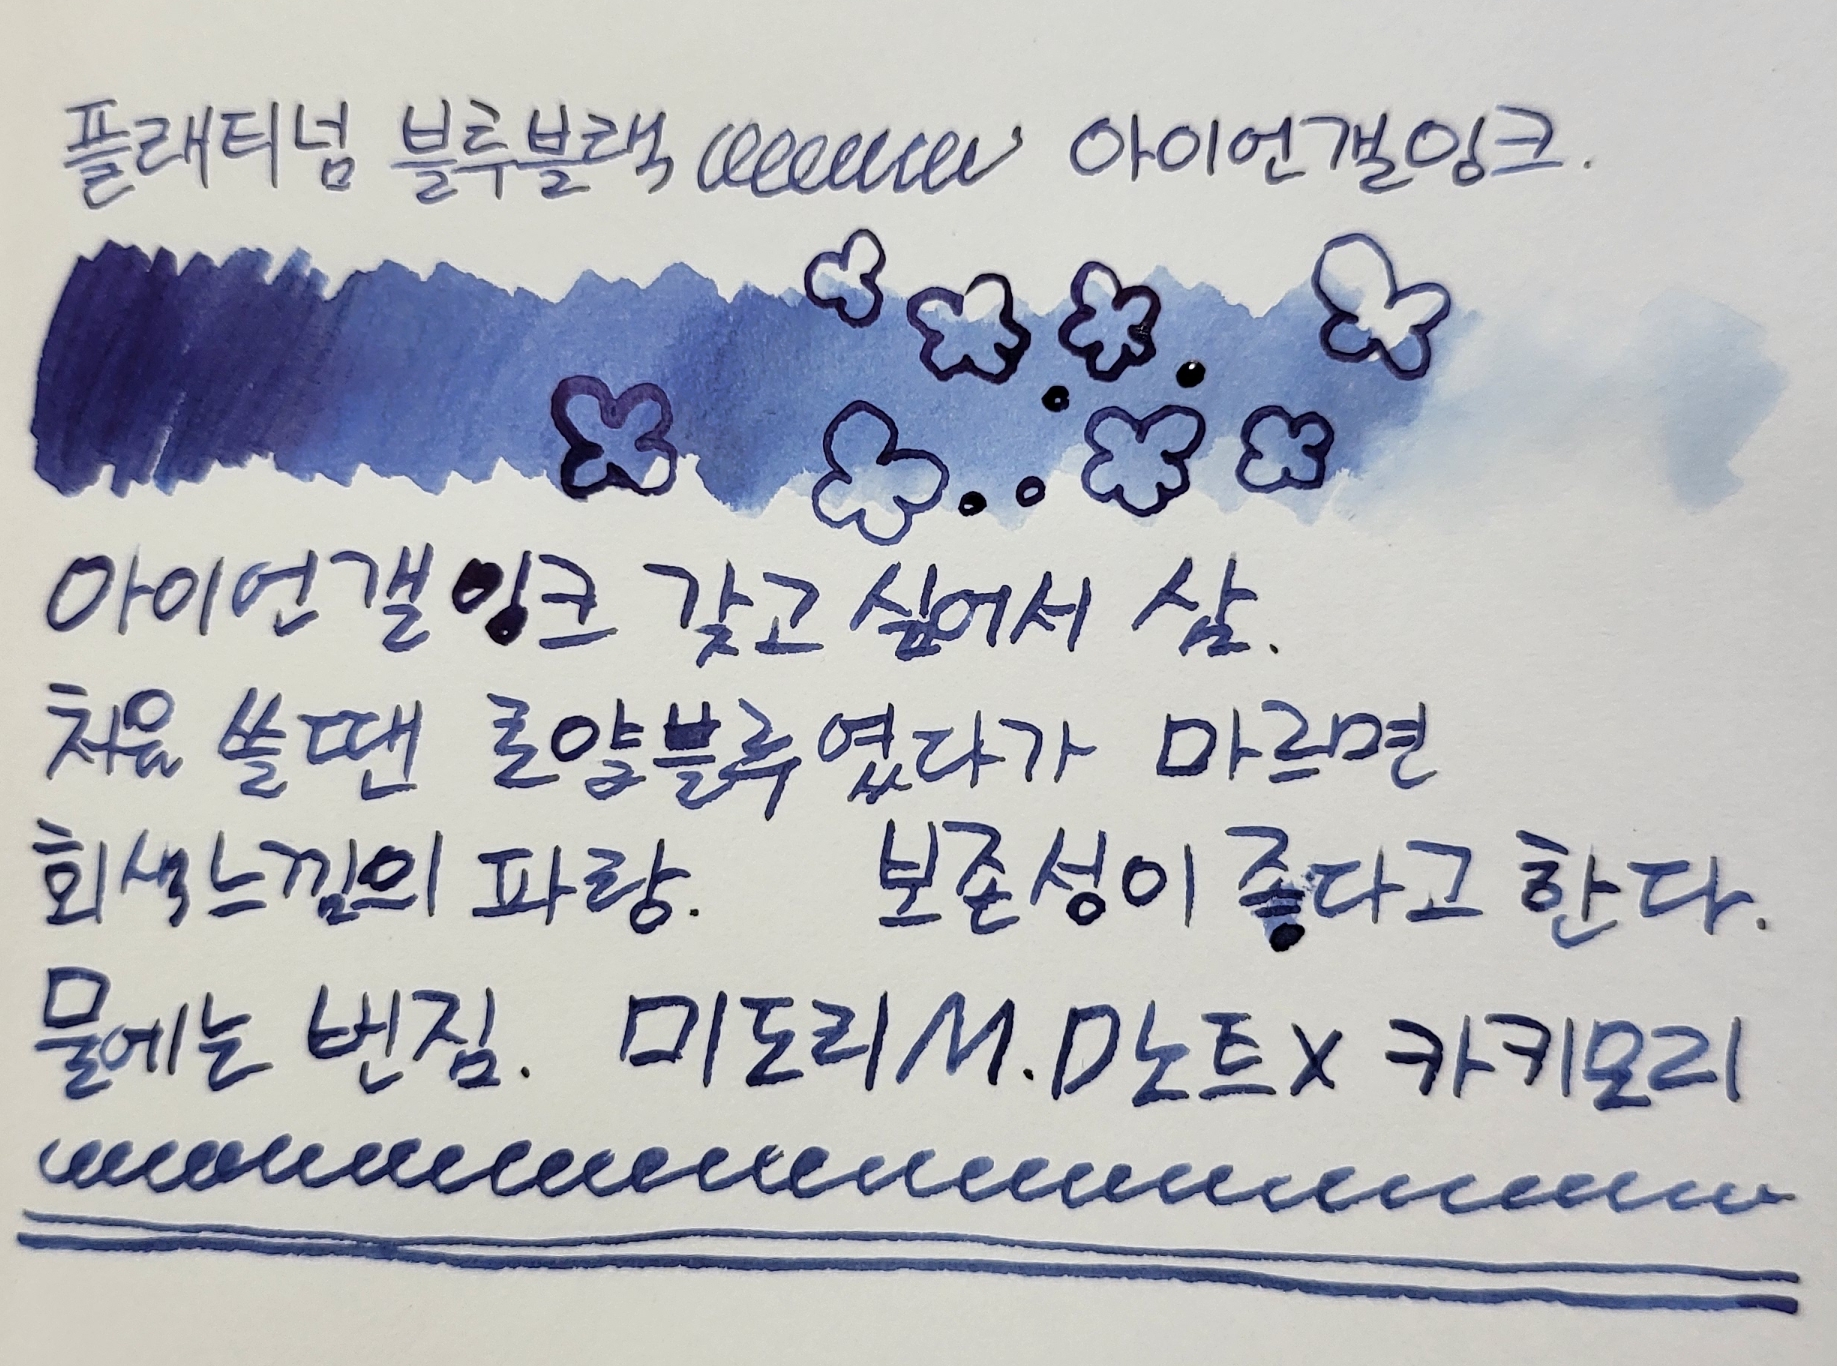 플래티넘 블루블랙 아이언갤잉크.
아이언갤잉크 갖고싶어서 삼.
처음 쓸땐 로얄블루였다가 마르면
회색느낌의 파랑. 보존성이 좋다고 한다.
물에는 번짐. 미도리 M.D노트 X 카키모리